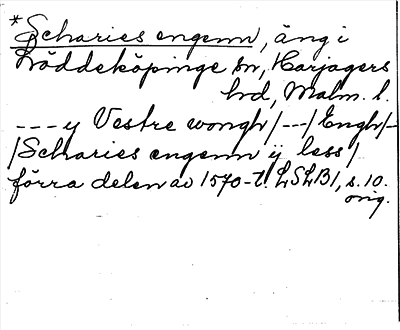 *Scharies engenn, äng i
Löddeköpinge sn, Harjagers
hd, Malm. l.
--- y Vestre wongh /---/ Engh /--
/Scharies engenn ÿ less /.
förra delen av 1570-t. LSLB1, s. 10.
orig.